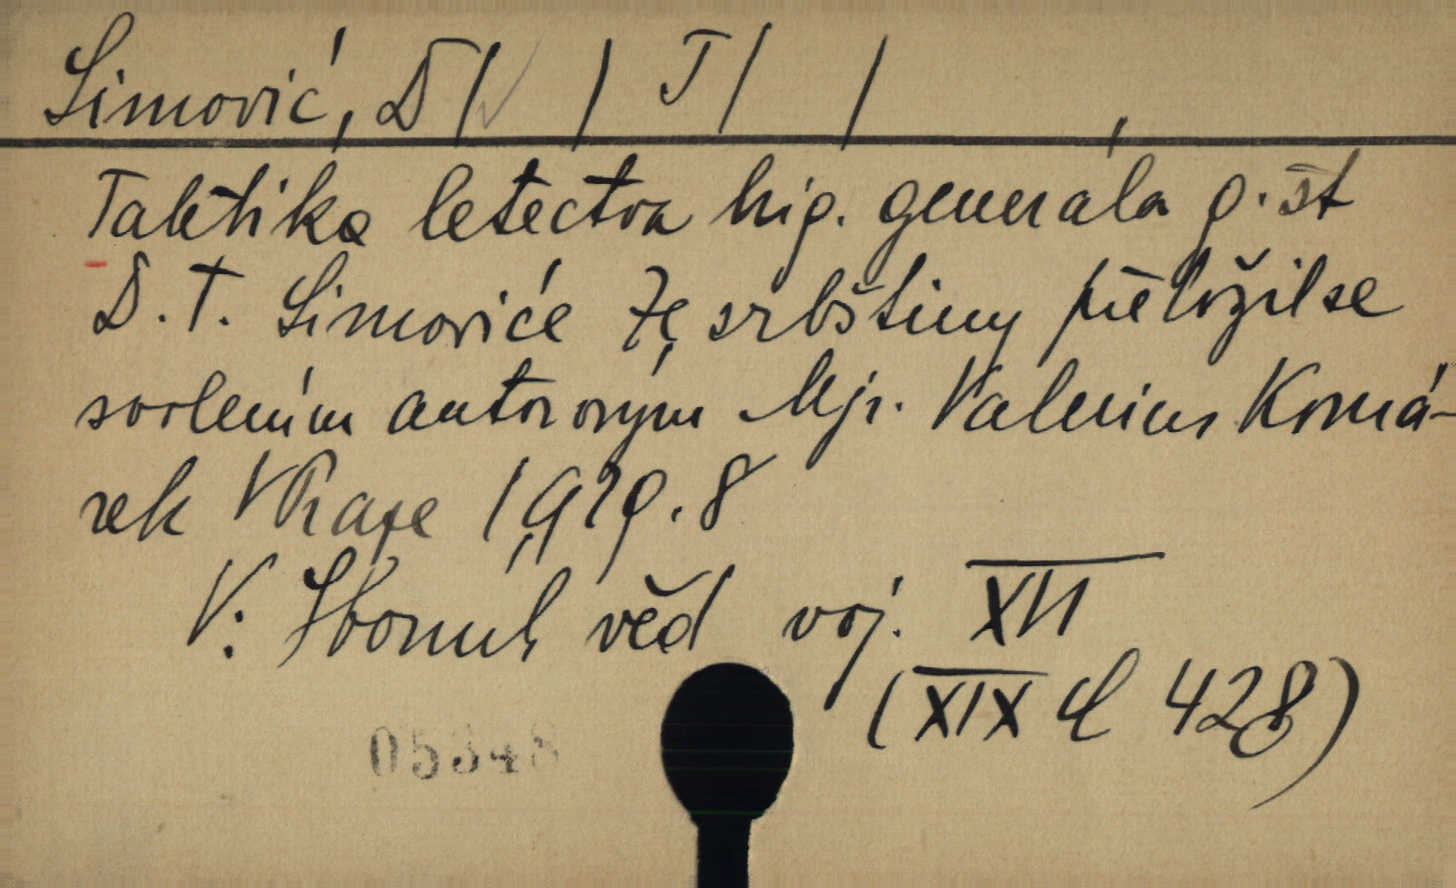 Simović, D/ / T/ / ,
Taktika letectva brig. generála g. št
D. T. Simoviće Ze srbštiny přeložil se
svolením autorovým Mjr. Valerius Komá-
rek V Praze 1929. 8
V: Sborník věd voj. XVI
(XIX d 428)
05348